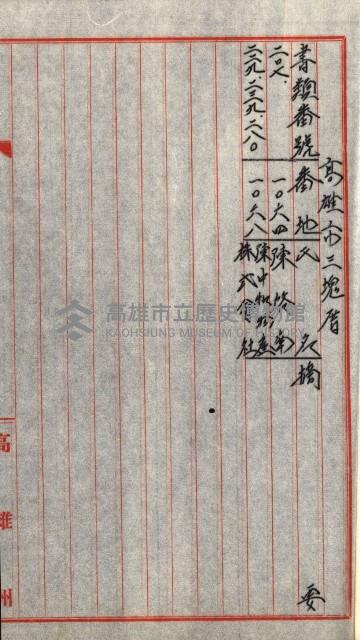 高雄市三塊厝
書類番號 番地 氏名 摘要
二〇八、 一〇六四 陳 南
二二九、二三九、二八〇 一〇六八 陳中和物產
株式會社
高雄州
高雄市立歷史博物館
KAOHSIUNG MUSEUM OF HISTORY